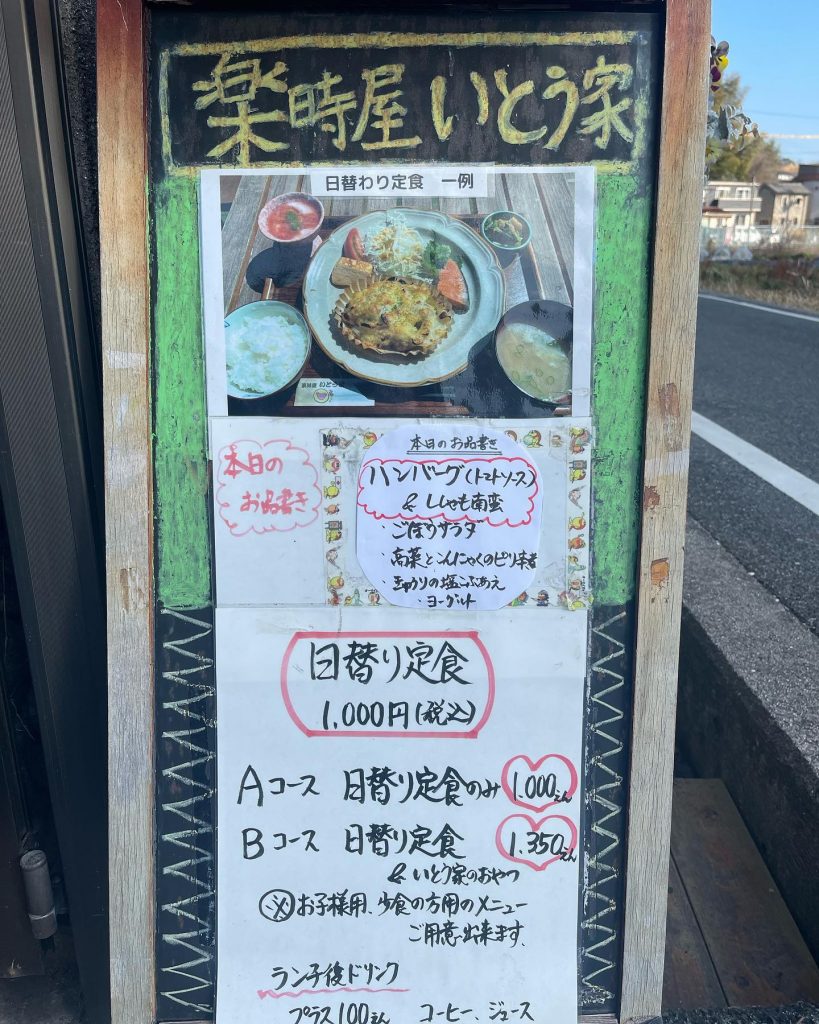 楽時屋 いとう家
日替わり定食 一例
楽時屋 いとう家
本日の
お品書き
本日のお品書き
ハンバーグ(トマトソース)
& ししゃも南蛮
ごぼうサラダ
・高菜とこんにゃくのピリ辛煮
・きゅうりの塩こぶあえ
・ヨーグルト
日替り定食
1,000円(税込)
Aコース 日替り定食のみ 1.000えん
Bコース 日替り定食 1.350えん
& いとう家のおやつ
※お子様用、少食の方用のメニュー
ご用意出来ます。
ランチ後ドリンク
プラス100えん コーヒー、ジュース